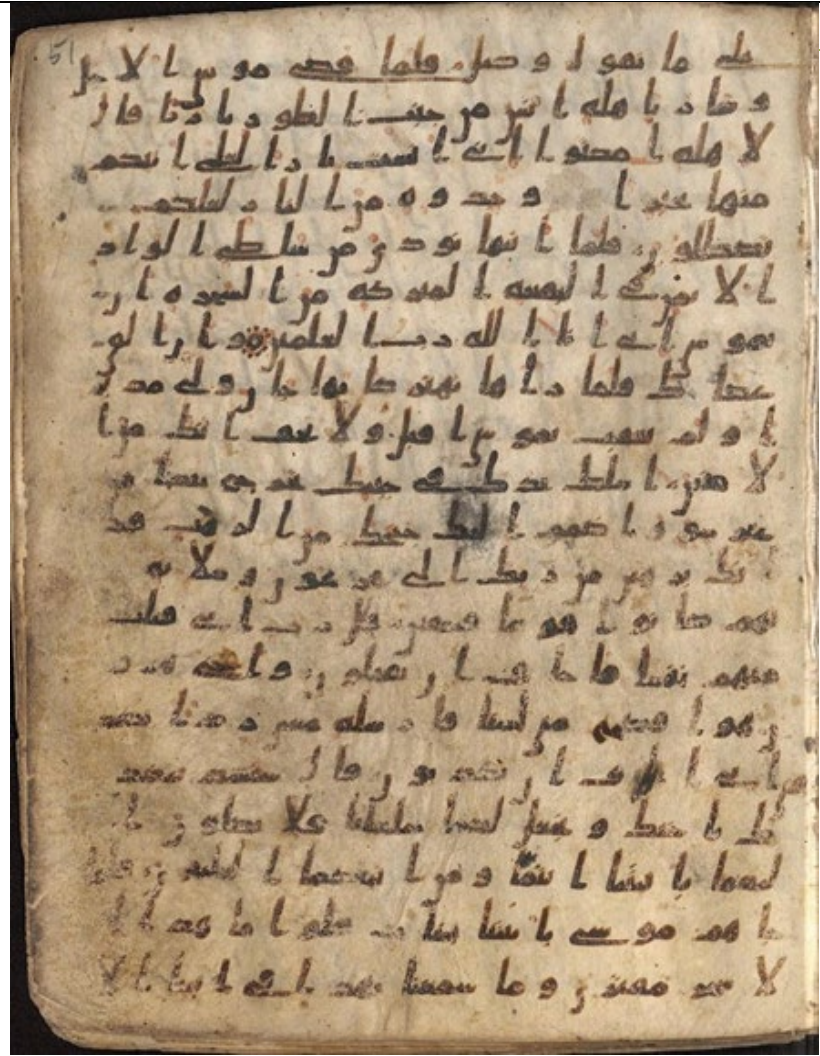 51
على ما نقول وكيل فلما قضى موسى الاجل
وسار باهله انس من جنب الطور نارا قال
لاهله امكثوا اني انست نارا لعلي اتيكم
منها بخبر او جذوه من النار لعلكم
تصطلون فلما اتيها نودي من شاطى الواد
الايمن في البقعه المبركه من الشجره ان
يموسى اني انا الله رب العلمين وان الق
عصاك فلما راها تهتز كانها جان ولى مدبر
ا ولم يعقب يموسى اقبل ولا تخف انك من ا
لامنين اسلك يدك في جيبك تخرج بيضا من
غير سو واضمم اليك جنحك من الرهب فذ
نك برهنن من ربك الى فرعون وملايه ا
نهم كانوا قوما فسقين قال رب اني قتلت
منهم نفسا فاخاف ان يقتلون واخي هر
ون هو افصح مني لسنا فارسله معي ردا يصد
قني اني اخاف ان يكذبون قال سنشد عضد
ك باخيك ونجعل لكما سلطنا فلا يصلون ا
ليكما بايتنا انتما ومن اتبعكما الغلبون فلما
جاهم موسى بايتنا بينت قالوا ما هذا ا
لا سحر مفترى وما سمعنا بهذا في ابائنا الا